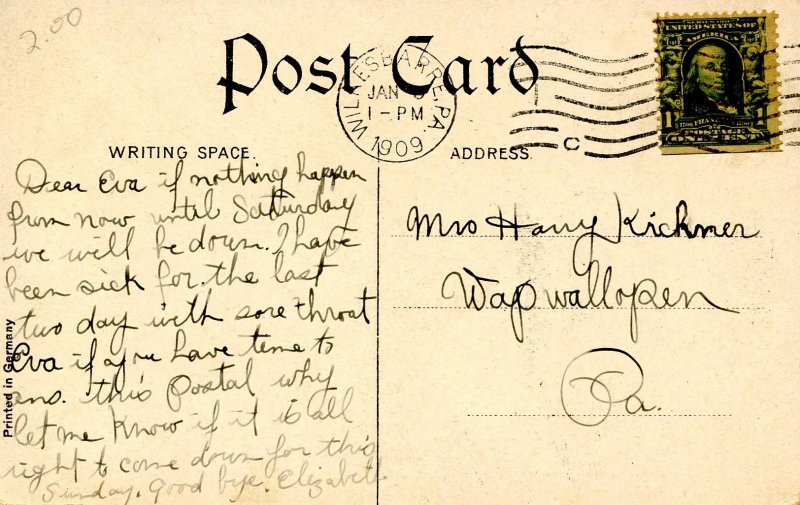 2.00
Post Card
WILKESBARRE, PA.
JAN
1-PM
1909
C
SERIES 1902
UNITED STATES OF
AMERICA
1 1
FRANKLIN
POSTAGE
ONE CENT
WRITING SPACE.
ADDRESS.
Dear Eva if nothing happen
from now until Saturday
we will be down. I have
been sick for the last
two day with sore throat
Eva if you have time to
ans. this Postal why
let me know if it is all
right to come down for this
Sunday. Good bye. Elizabeth
Mrs Harry Kichmer
Wapwallopen
Pa.
Printed in Germany